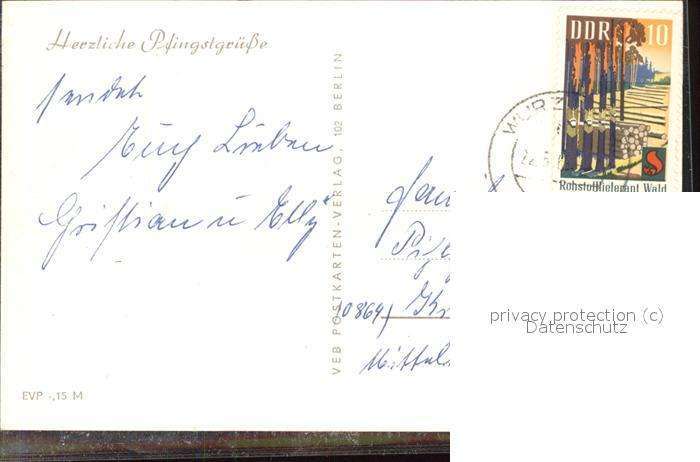 Herzliche Pfingstgrüße
sendet
Euch Lieben
Christian u Elly
VEB POSTKARTEN-VERLAG, 102 BERLIN
EVP -,15 M
DDR 10
Rohstofflieferant Wald
WURZ
(10864)
Mittel
privacy protection (c)
Datenschutz